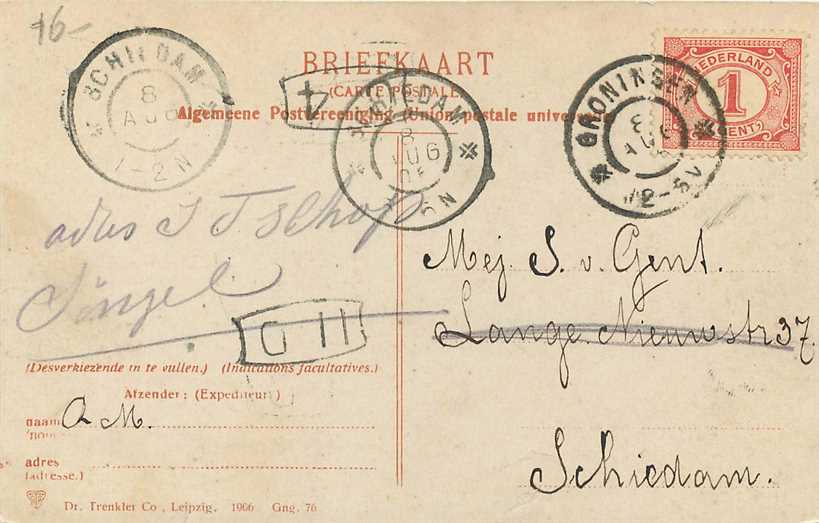 16-
SCHIEDAM
8
AUG
1-2N
BRIEFKAART
(CARTE POSTALE)
Algemeene Postvereeniging (Union postale universelle)
4
SCHIEDAM
8
AUG
N
GRONINGEN
8
AUG
12-5V
NEDERLAND
1
CENT
adres
Singel
G II
Mej S. v. Gent.
Lange Nieuwstr 37.
Schiedam.
(Desverkiezende in te vullen.) (Indications facultatives.)
Afzender: (Expediteur:)
naam A. M.
(nom)
adres
(adresse.)
Dr. Trenkler Co., Leipzig. 1906 Gng. 76